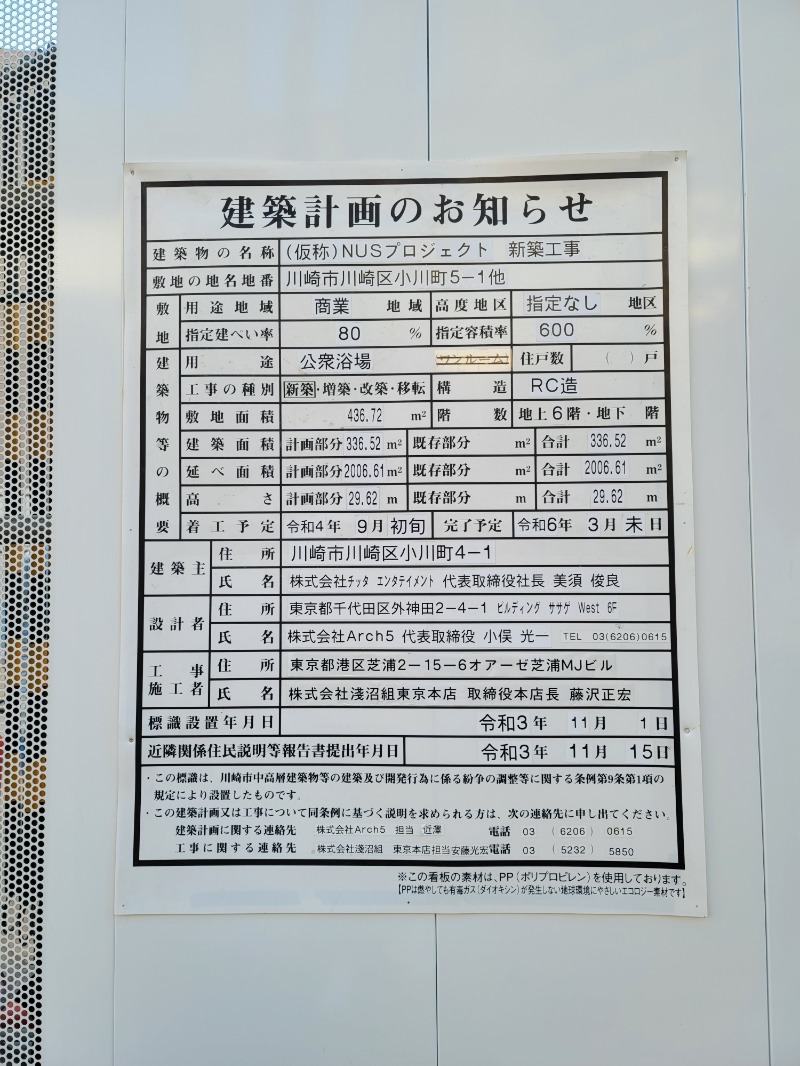 建築計画のお知らせ
建築物の名称 (仮称)NUSプロジェクト 新築工事
敷地の地名地番 川崎市川崎区小川町5－1他
敷地 用途地域 商業 地域 高度地区 指定なし 地区
指定建ぺい率 80 % 指定容積率 600 %
建築物等の概要 用途 公衆浴場 ワンルーム 住戸数 （ ）戸
工事の種別 新築・増築・改築・移転 構造 RC造
敷地面積 436.72 m² 階数 地上6階・地下 階
建築面積 計画部分 336.52 m² 既存部分 m² 合計 336.52 m²
延べ面積 計画部分 2006.61 m² 既存部分 m² 合計 2006.61 m²
高さ 計画部分 29.62 m 既存部分 m 合計 29.62 m
着工予定 令和4年 9月 初旬 完了予定 令和6年 3月 末 日
建築主 住所 川崎市川崎区小川町4－1
氏名 株式会社チッタ エンタテイメント 代表取締役社長 美須 俊良
設計者 住所 東京都千代田区外神田2－4－1 ビルディング ササゲ West 6F
氏名 株式会社Arch5 代表取締役 小俣 光一 TEL 03(6206)0615
工事施工者 住所 東京都港区芝浦2－15－6オアーゼ芝浦MJビル
氏名 株式会社淺沼組東京本店 取締役本店長 藤沢正宏
標識設置年月日 令和3年 11月 1日
近隣関係住民説明等報告書提出年月日 令和3年 11月 15日
・この標識は、川崎市中高層建築物等の建築及び開発行為に係る紛争の調整等に関する条例第9条第1項の
規定により設置したものです。
・この建築計画又は工事について同条例に基づく説明を求められる方は、次の連絡先に申し出てください。
建築計画に関する連絡先 株式会社Arch5 担当 近澤 電話 03 （6206）0615
工事に関する連絡先 株式会社淺沼組 東京本店担当安藤光宏 電話 03 （5232）5850
※この看板の素材は、PP（ポリプロピレン）を使用しております。
【PPは燃やしても有毒ガス（ダイオキシン）が発生しない地球環境にやさしいエコロジー素材です】